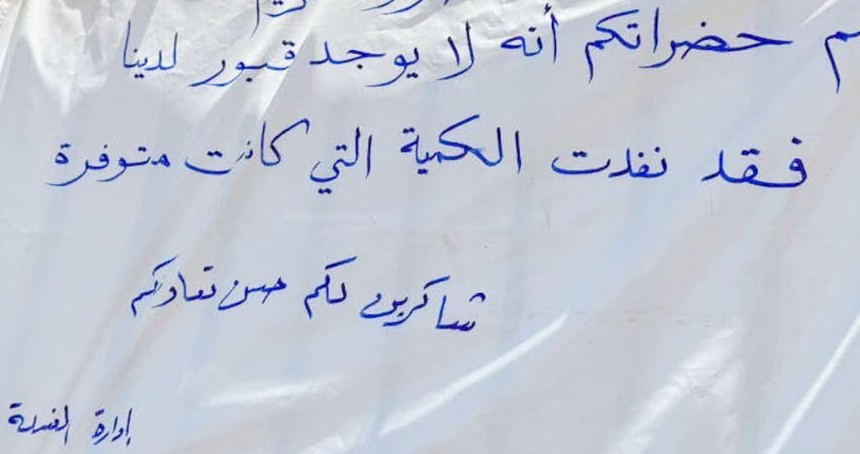 حضراتكم أنه لا يوجد قبور لدينا
فقد نفدت الكمية التي كانت متوفرة
شاكرين لكم حسن تعاونكم
إدارة